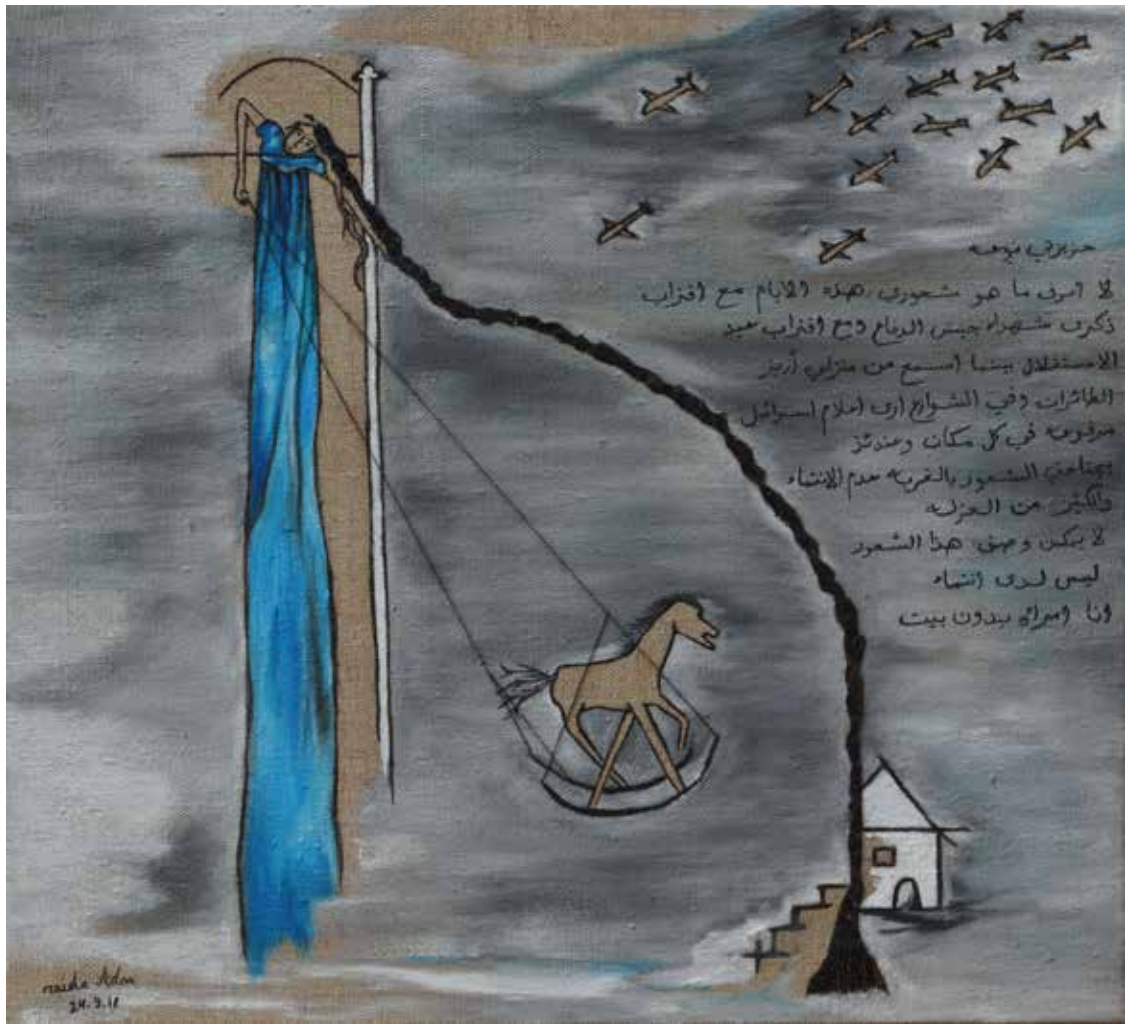 عزيزتي نوعه
لا اعرف ما هو شعوري هذه الايام مع اقتراب
ذكرى شهداء جيش الدفاع ومع اقتراب عيد
الاستقلال بينما اسمع من منزلي أزيز
الطائرات وفي الشوارع ارى اعلام اسرائيل
مرفوعه في كل مكان وعندئذ
يجتاحني الشعور بالغربه عدم الانتماء
والكثير من العزله
لا يمكن وصف هذا الشعور
ليس لدى انتماء
انا امرأه بدون بيت
raida Adon